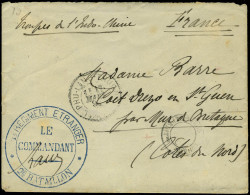 Troupes de l'Indo-Chine France
Madame Barre
Coit Drezo en St Guen
par Mur de Bretagne
(Côtes du Nord)
REGIMENT ETRANGER
LE
COMMANDANT
BATAILLON